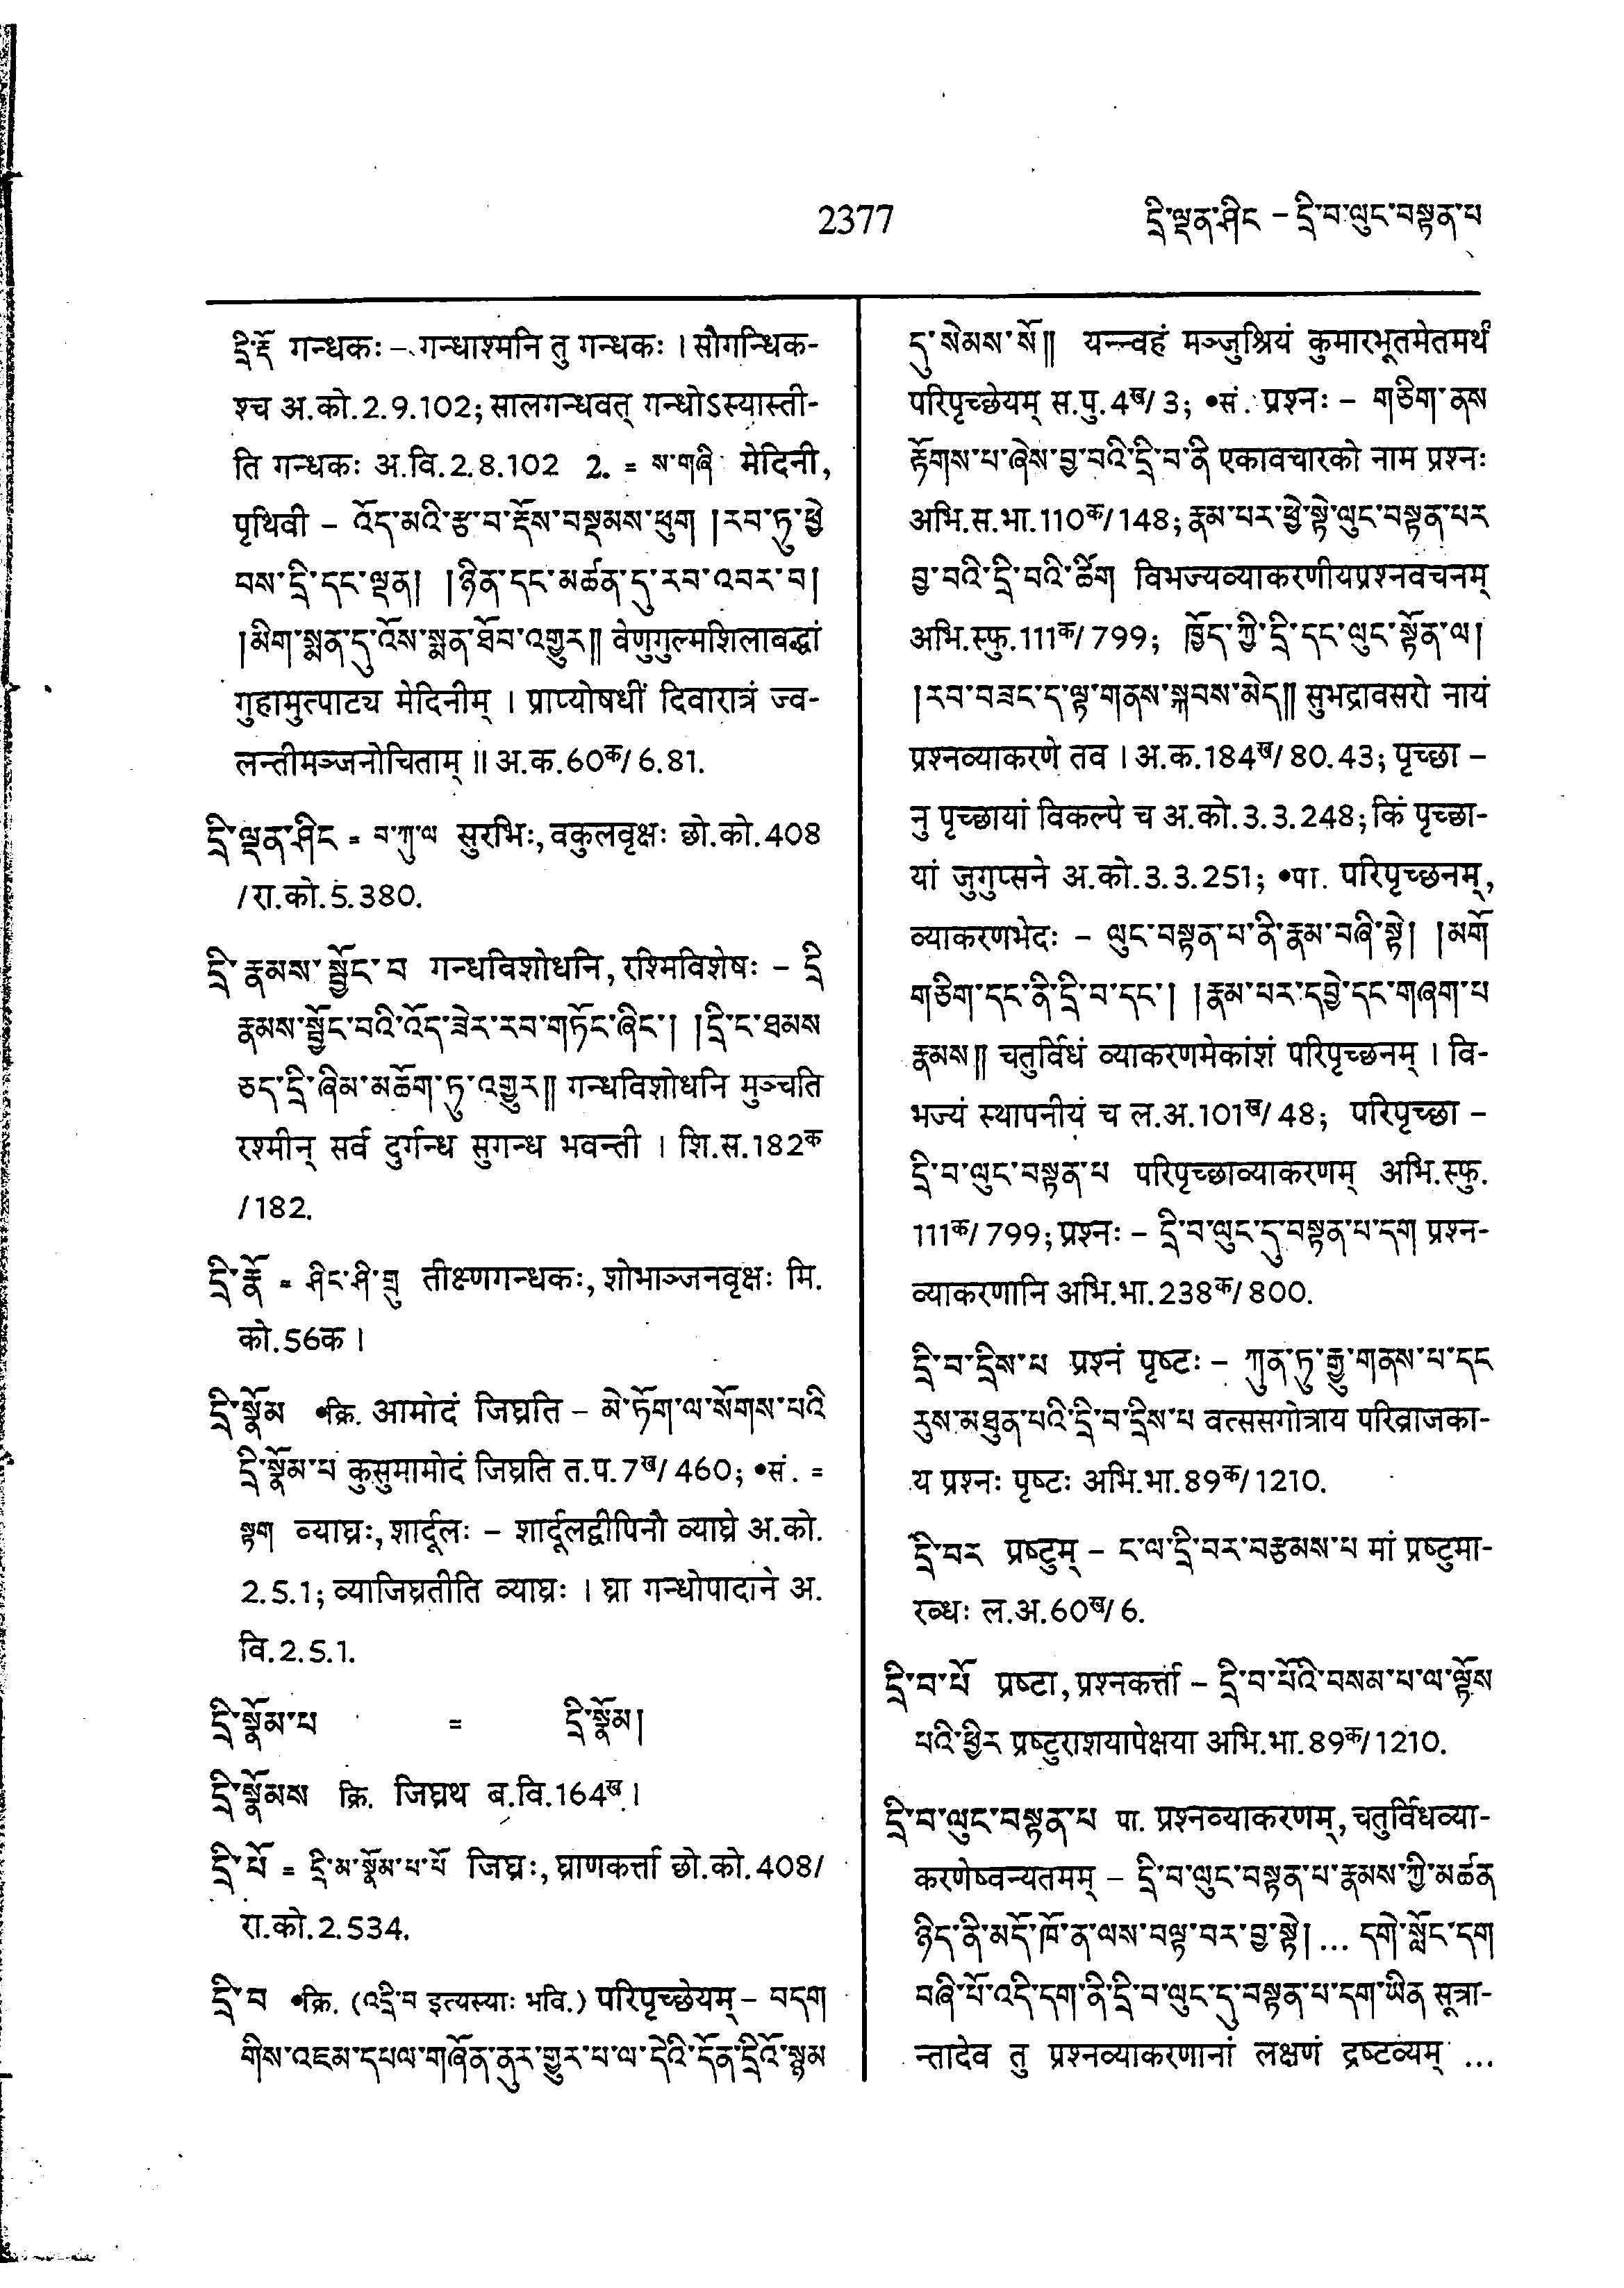 2377
དྲི་ལྡན་ཤིང – དྲི་བ་ལུང་བསྟན་པ
དྲི་རྡོ गन्धकः – गन्धाश्मनि तु गन्धकः । सौगन्धिक-
श्च अ.को.2.9.102; सालगन्धवत् गन्धोऽस्यास्ती-
ति गन्धकः अ.वि.2.8.102 2. = ས་གཞི मेदिनी,
पृथिवी – འོད་མའི་རྩ་བ་རྡོས་བསྡམས་ཕུག །རབ་ཏུ་ཕྱེ
བས་དྲི་དང་ལྡན། །ཉིན་དང་མཚན་དུ་རབ་འབར་བ།
།མིག་སྨན་དུ་འོས་སྨན་ཐོབ་འགྱུར།། वेणुगुल्मशिलाबद्धां
गुहामुत्पाट्य मेदिनीम् । प्राप्योषधीं दिवारात्रं ज्व-
लन्तीमञ्जनोचिताम् ॥ अ.क.60क/6.81.
དྲི་ལྡན་ཤིང = བ་ཀུ་ལ सुरभिः, वकुलवृक्षः छो.को.408
/रा.को.5.380.
དྲི་རྣམས་སྦྱོང་བ गन्धविशोधनि, रश्मिविशेषः – དྲི
རྣམས་སྦྱོང་བའི་འོད་ཟེར་རབ་གཏོང་ཞིང་། །དྲི་ང་ཐམས
ཅད་དྲི་ཞིམ་མཆོག་ཏུ་འགྱུར།། गन्धविशोधनि मुञ्चति
रश्मीन् सर्व दुर्गन्ध सुगन्ध भवन्ती । शि.स.182क
/182.
དྲི་རྣོ = ཤིང་ཤི་གྲུ तीक्ष्णगन्धकः, शोभाञ्जनवृक्षः मि.
को.56क ।
དྲི་སྣོམ •क्रि. आमोदं जिघ्रति – མེ་ཏོག་ལ་སོགས་པའི
དྲི་སྣོམ་པ कुसुमामोदं जिघ्रति त.प.7ख/460; •सं. =
སྟག व्याघ्रः, शार्दूलः – शार्दूलद्वीपिनौ व्याघ्रे अ.को.
2.5.1; व्याजिघ्रतीति व्याघ्रः । घ्रा गन्धोपादाने अ.
वि.2.5.1.
དྲི་སྣོམ་པ = དྲི་སྣོམ།
དྲི་སྣོམས क्रि. जिघ्रथ ब.वि.164ख ।
དྲི་པོ = དྲི་མ་སྣོམ་པ་པོ जिघ्रः, घ्राणकर्त्ता छो.को.408/
रा.को.2.534.
དྲི་བ •क्रि. (འདྲི་བ इत्यस्याः भवि.) परिपृच्छेयम् – བདག
གིས་འཇམ་དཔལ་གཞོན་ནུར་གྱུར་པ་ལ་དེའི་དོན་དྲིའོ་སྙམ
དུ་སེམས་སོ།། यन्न्वहं मञ्जुश्रियं कुमारभूतमेतमर्थं
परिपृच्छेयम् स.पु.4ख/3; •सं. प्रश्नः – གཅིག་ནས
རྟོགས་པ་ཞེས་བྱ་བའི་དྲི་བ་ནི एकावचारको नाम प्रश्नः
अभि.स.भा.110क/148; རྣམ་པར་ཕྱེ་སྟེ་ལུང་བསྟན་པར
བྱ་བའི་དྲི་བའི་ཚིག विभज्यव्याकरणीयप्रश्नवचनम्
अभि.स्फु.111क/799; ཁྱོད་ཀྱི་དྲི་དང་ལུང་སྟོན་ལ།
།རབ་བཟང་ད་ལྟ་གནས་སྐབས་མེད།། सुभद्रावसरो नायं
प्रश्नव्याकरणे तव । अ.क.184ख/80.43; पृच्छा –
नु पृच्छायां विकल्पे च अ.को.3.3.248; किं पृच्छा-
यां जुगुप्सने अ.को.3.3.251; •पा. परिपृच्छनम्,
व्याकरणभेदः – ལུང་བསྟན་པ་ནི་རྣམ་བཞི་སྟེ། །མགོ
གཅིག་དང་ནི་དྲི་བ་དང་། །རྣམ་པར་དབྱེ་དང་གཞག་པ
རྣམས།། चतुर्विधं व्याकरणमेकांशं परिपृच्छनम् । वि-
भज्यं स्थापनीयं च ल.अ.101ख/48; परिपृच्छा –
དྲི་བ་ལུང་བསྟན་པ परिपृच्छाव्याकरणम् अभि.स्फु.
111क/799; प्रश्नः – དྲི་བ་ལུང་དུ་བསྟན་པ་དག प्रश्न-
व्याकरणानि अभि.भा.238क/800.
དྲི་བ་དྲིས་པ प्रश्नं पृष्टः – ཀུན་ཏུ་རྒྱུ་གནས་པ་དང
རུས་མཐུན་པའི་དྲི་བ་དྲིས་པ वत्ससगोत्राय परिव्राजका-
य प्रश्नः पृष्टः अभि.भा.89क/1210.
དྲི་བར प्रष्टुम् – ང་ལ་དྲི་བར་བརྩམས་པ मां प्रष्टुमा-
रब्धः ल.अ.60ख/6.
དྲི་བ་པོ प्रष्टा, प्रश्नकर्त्ता – དྲི་བ་པོའི་བསམ་པ་ལ་ལྟོས
པའི་ཕྱིར प्रष्टुराशयापेक्षया अभि.भा.89क/1210.
དྲི་བ་ལུང་བསྟན་པ पा. प्रश्नव्याकरणम्, चतुर्विधव्या-
करणेष्वन्यतमम् – དྲི་བ་ལུང་བསྟན་པ་རྣམས་ཀྱི་མཚན
ཉིད་ནི་མདོ་ཁོ་ན་ལས་བལྟ་བར་བྱ་སྟེ། ... དགེ་སློང་དག
བཞི་པོ་འདི་དག་ནི་དྲི་བ་ལུང་དུ་བསྟན་པ་དག་ཡིན सूत्रा-
न्तादेव तु प्रश्नव्याकरणानां लक्षणं द्रष्टव्यम् ...